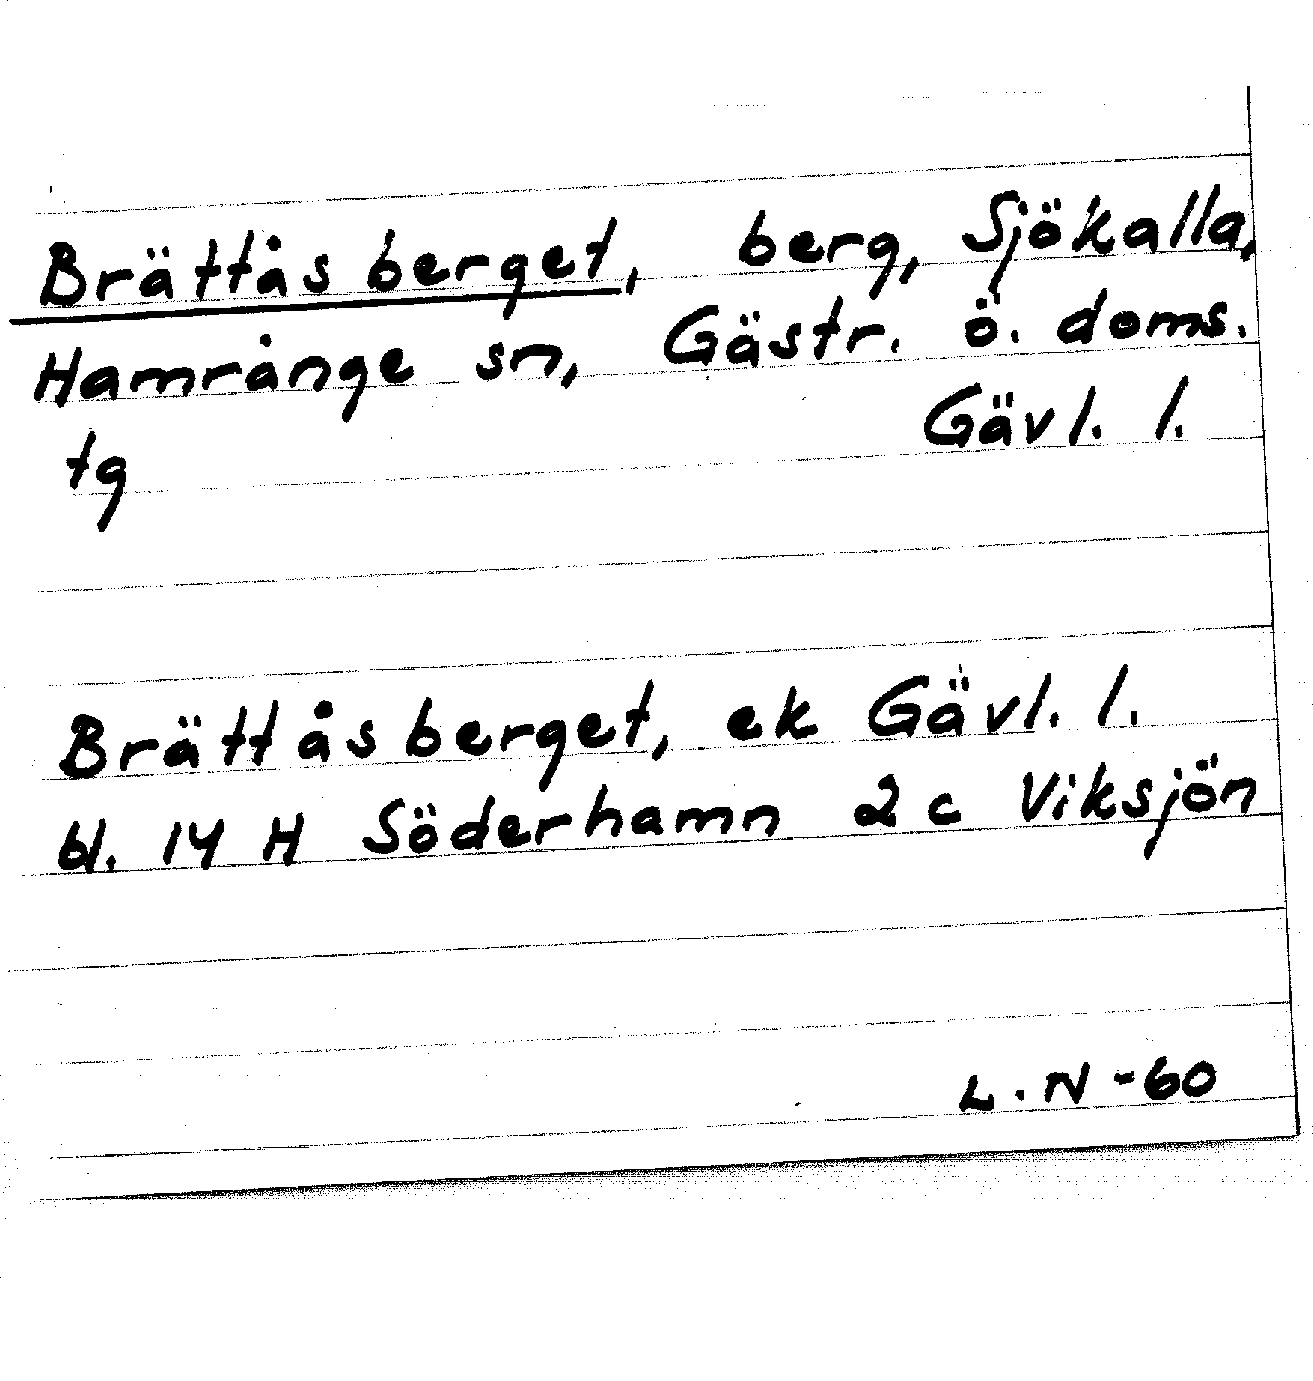 Brättåsberget, berg, Sjökalla,
Hamrånge sn, Gästr. ö. doms.
tg Gävl. l.
Brättåsberget, ek Gävl. l.
bl. 14 H Söderhamn 2 c Viksjön
L. N -60